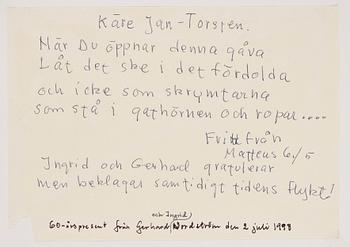 Käre Jan-Torsten.
När Du öppnar denna gåva
Låt det ske i det fördolda
och icke som skrymtarna
som stå i gathörnen och ropar....
Fritt från
Matteus 6/5
Ingrid och Gerhard gratulerar
men beklagar samtidigt tidens flykt!
och Ingrid
60-årspresent från Gerhard Nordström den 2 juli 1998